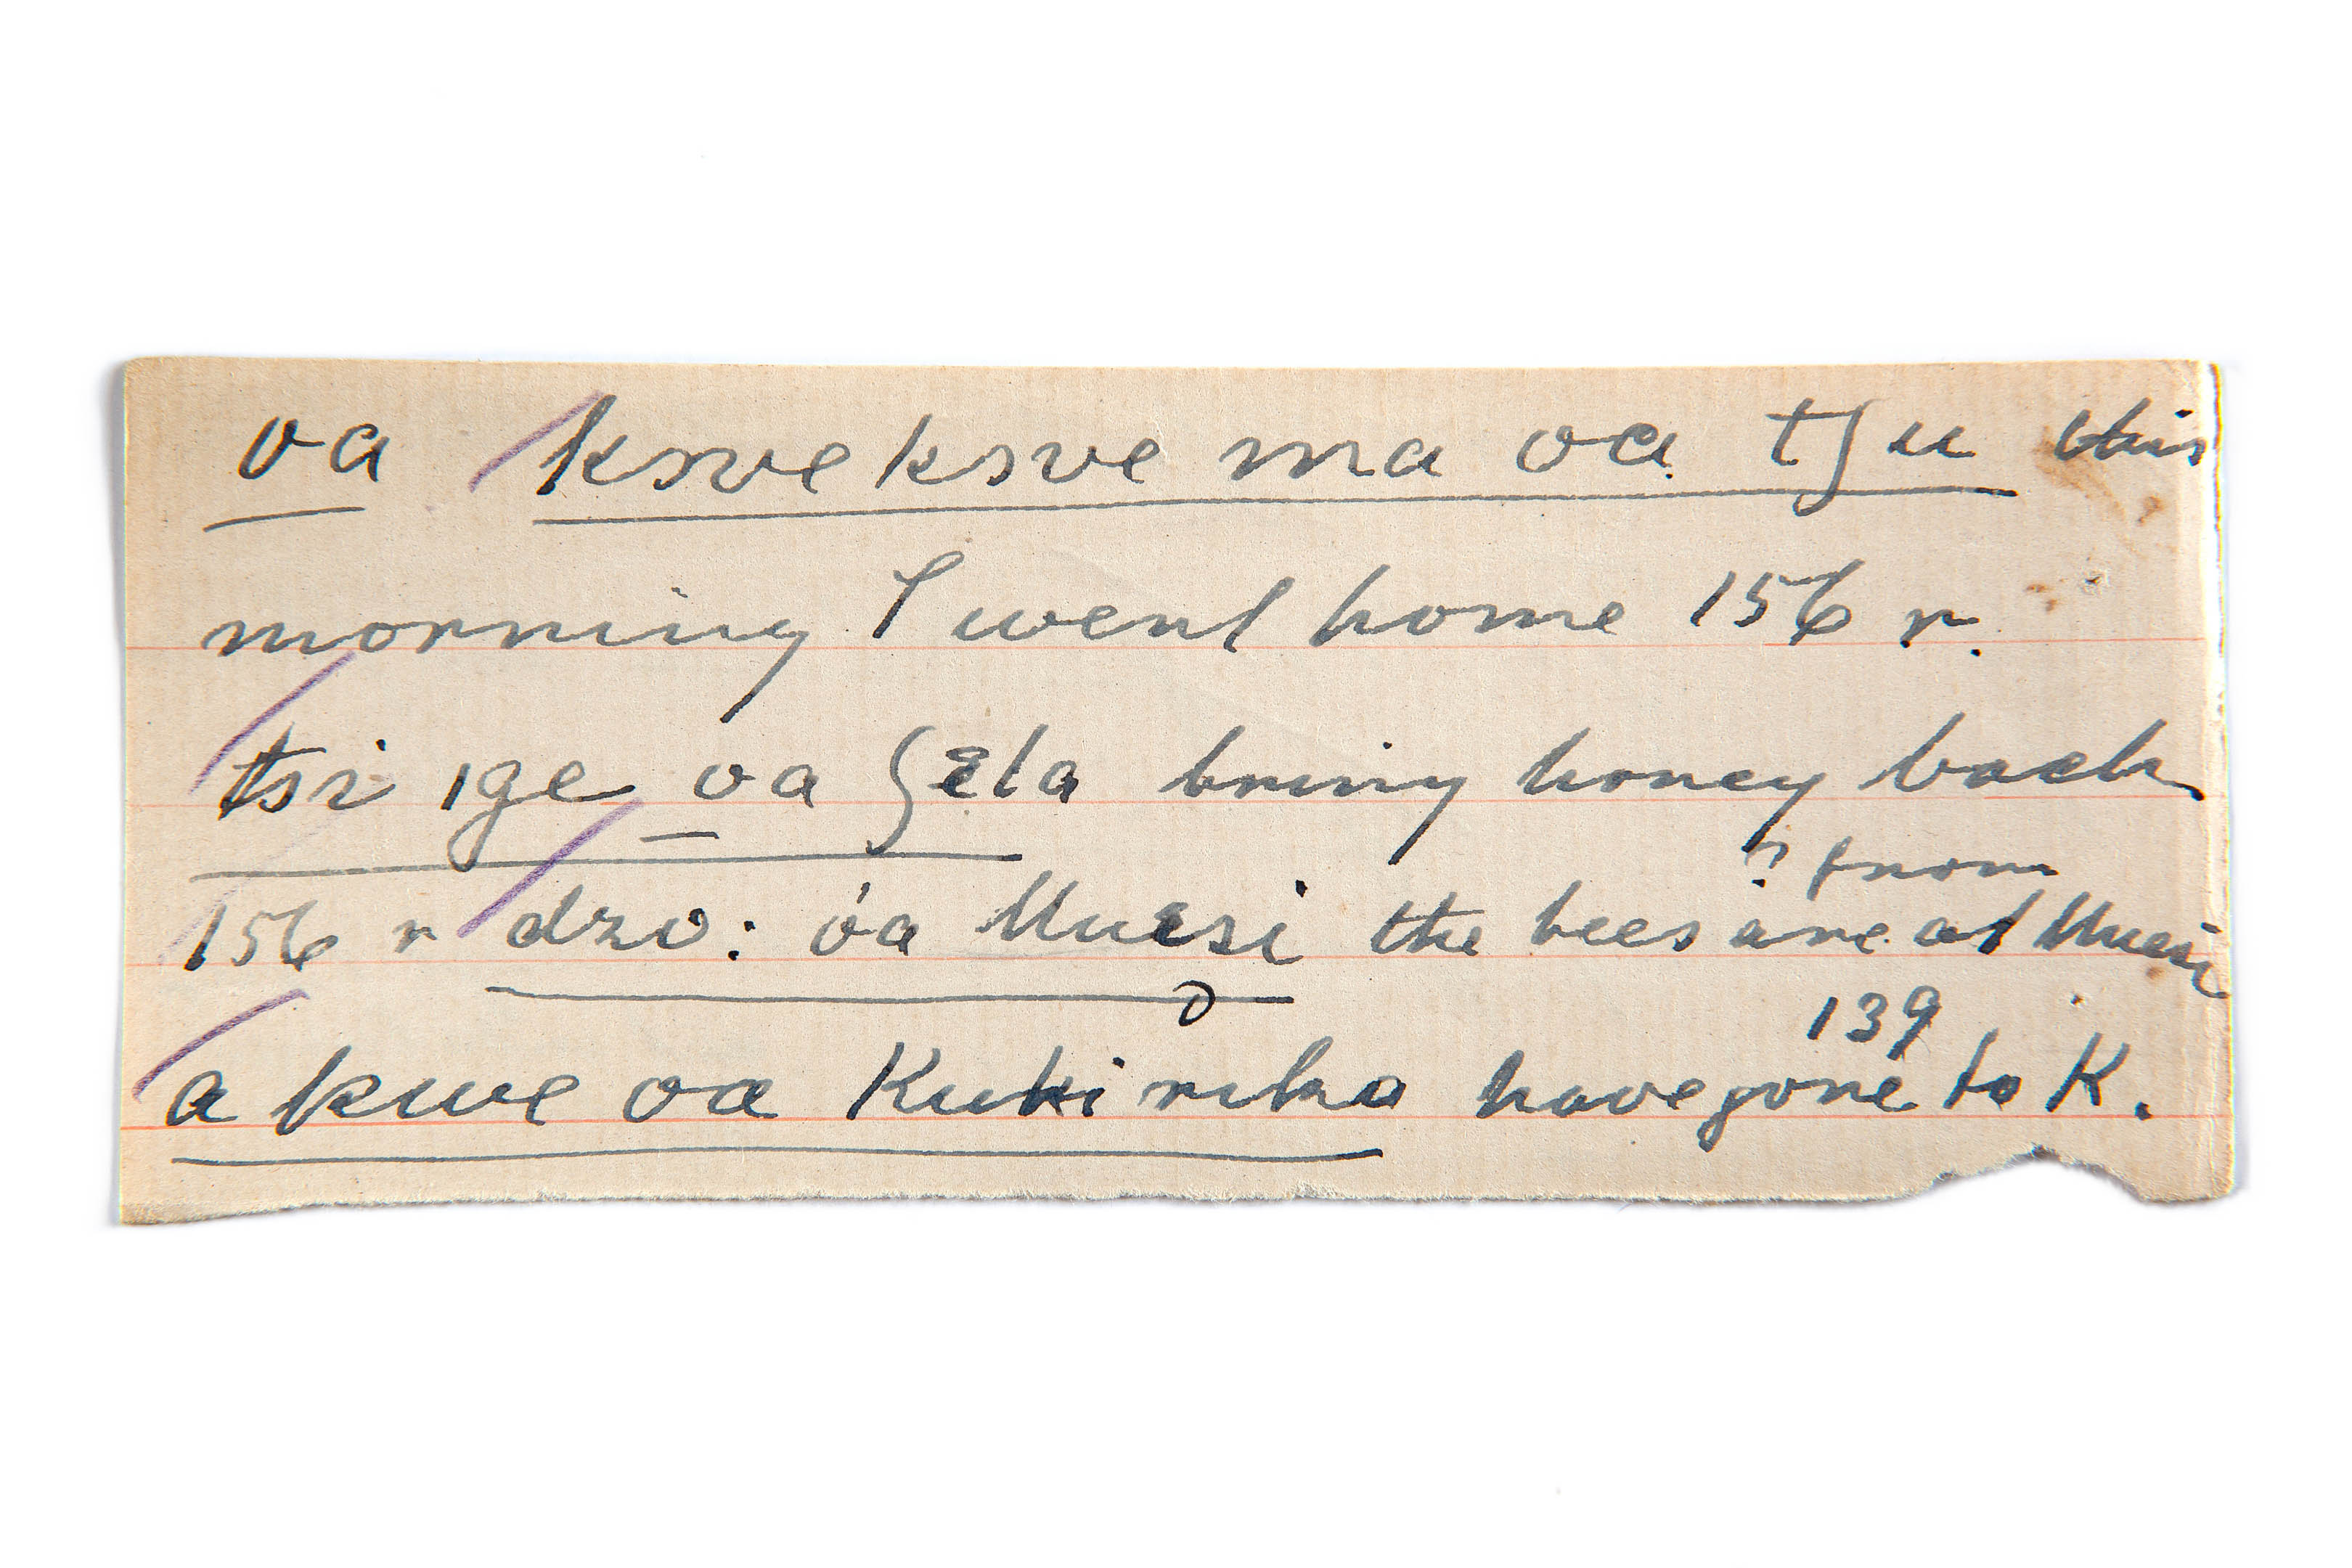 va ksveksve ma va tʃu this
morning I went home 156 r.
tsi ige va ʕɛta bring honey back
? from
156 r dzv: va Muɛsi the bees are at Muesi
139
a kwe va Kukiruka have gone to K.